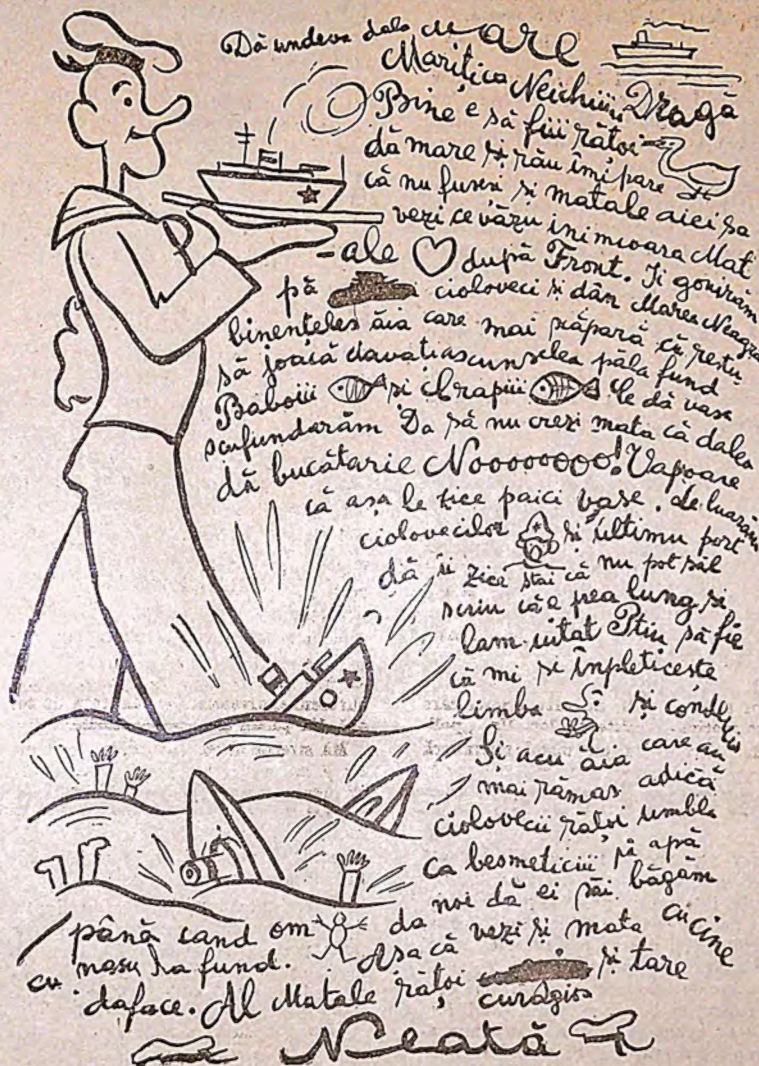 Dă undeva dala mare
Maritica Neichiiii Dragă
Bine e să fiii rătoi
dă mare și rău îmi pare
că nu fuseși și matale aici sa
vezi ce văzu inimioara Mat
-ale după Front. Ii goniram
pă cioloveci și dân Marea Neagra
binenteles ăia care mai scăpară că restu
să joacă davatiascunselea păla fund
Baboiii și Crapiii Ce dă vase
scufundarăm Da să nu crezi mata că dalea
dă bucătarie Noooooooo! Vapoare
că asa le zice paici vase. Le luarăm
ciolovecilor și ultimu port
dă ii zice stai că nu pot săl
scriu că e prea lung si
lam uitat Ptiu să fie
că mi se înpleticeste
limba si condeiu
Si acu ăia care au
mai rămas adică
ciolovecii rătoi umblă
ca besmeticiii pă apă
noi dă ei săi băgăm
până cand om da cu cine
cu nasu la fund. Asa că vezi și mata
daface. Al Matale rătoi și tare
curagios
Neață